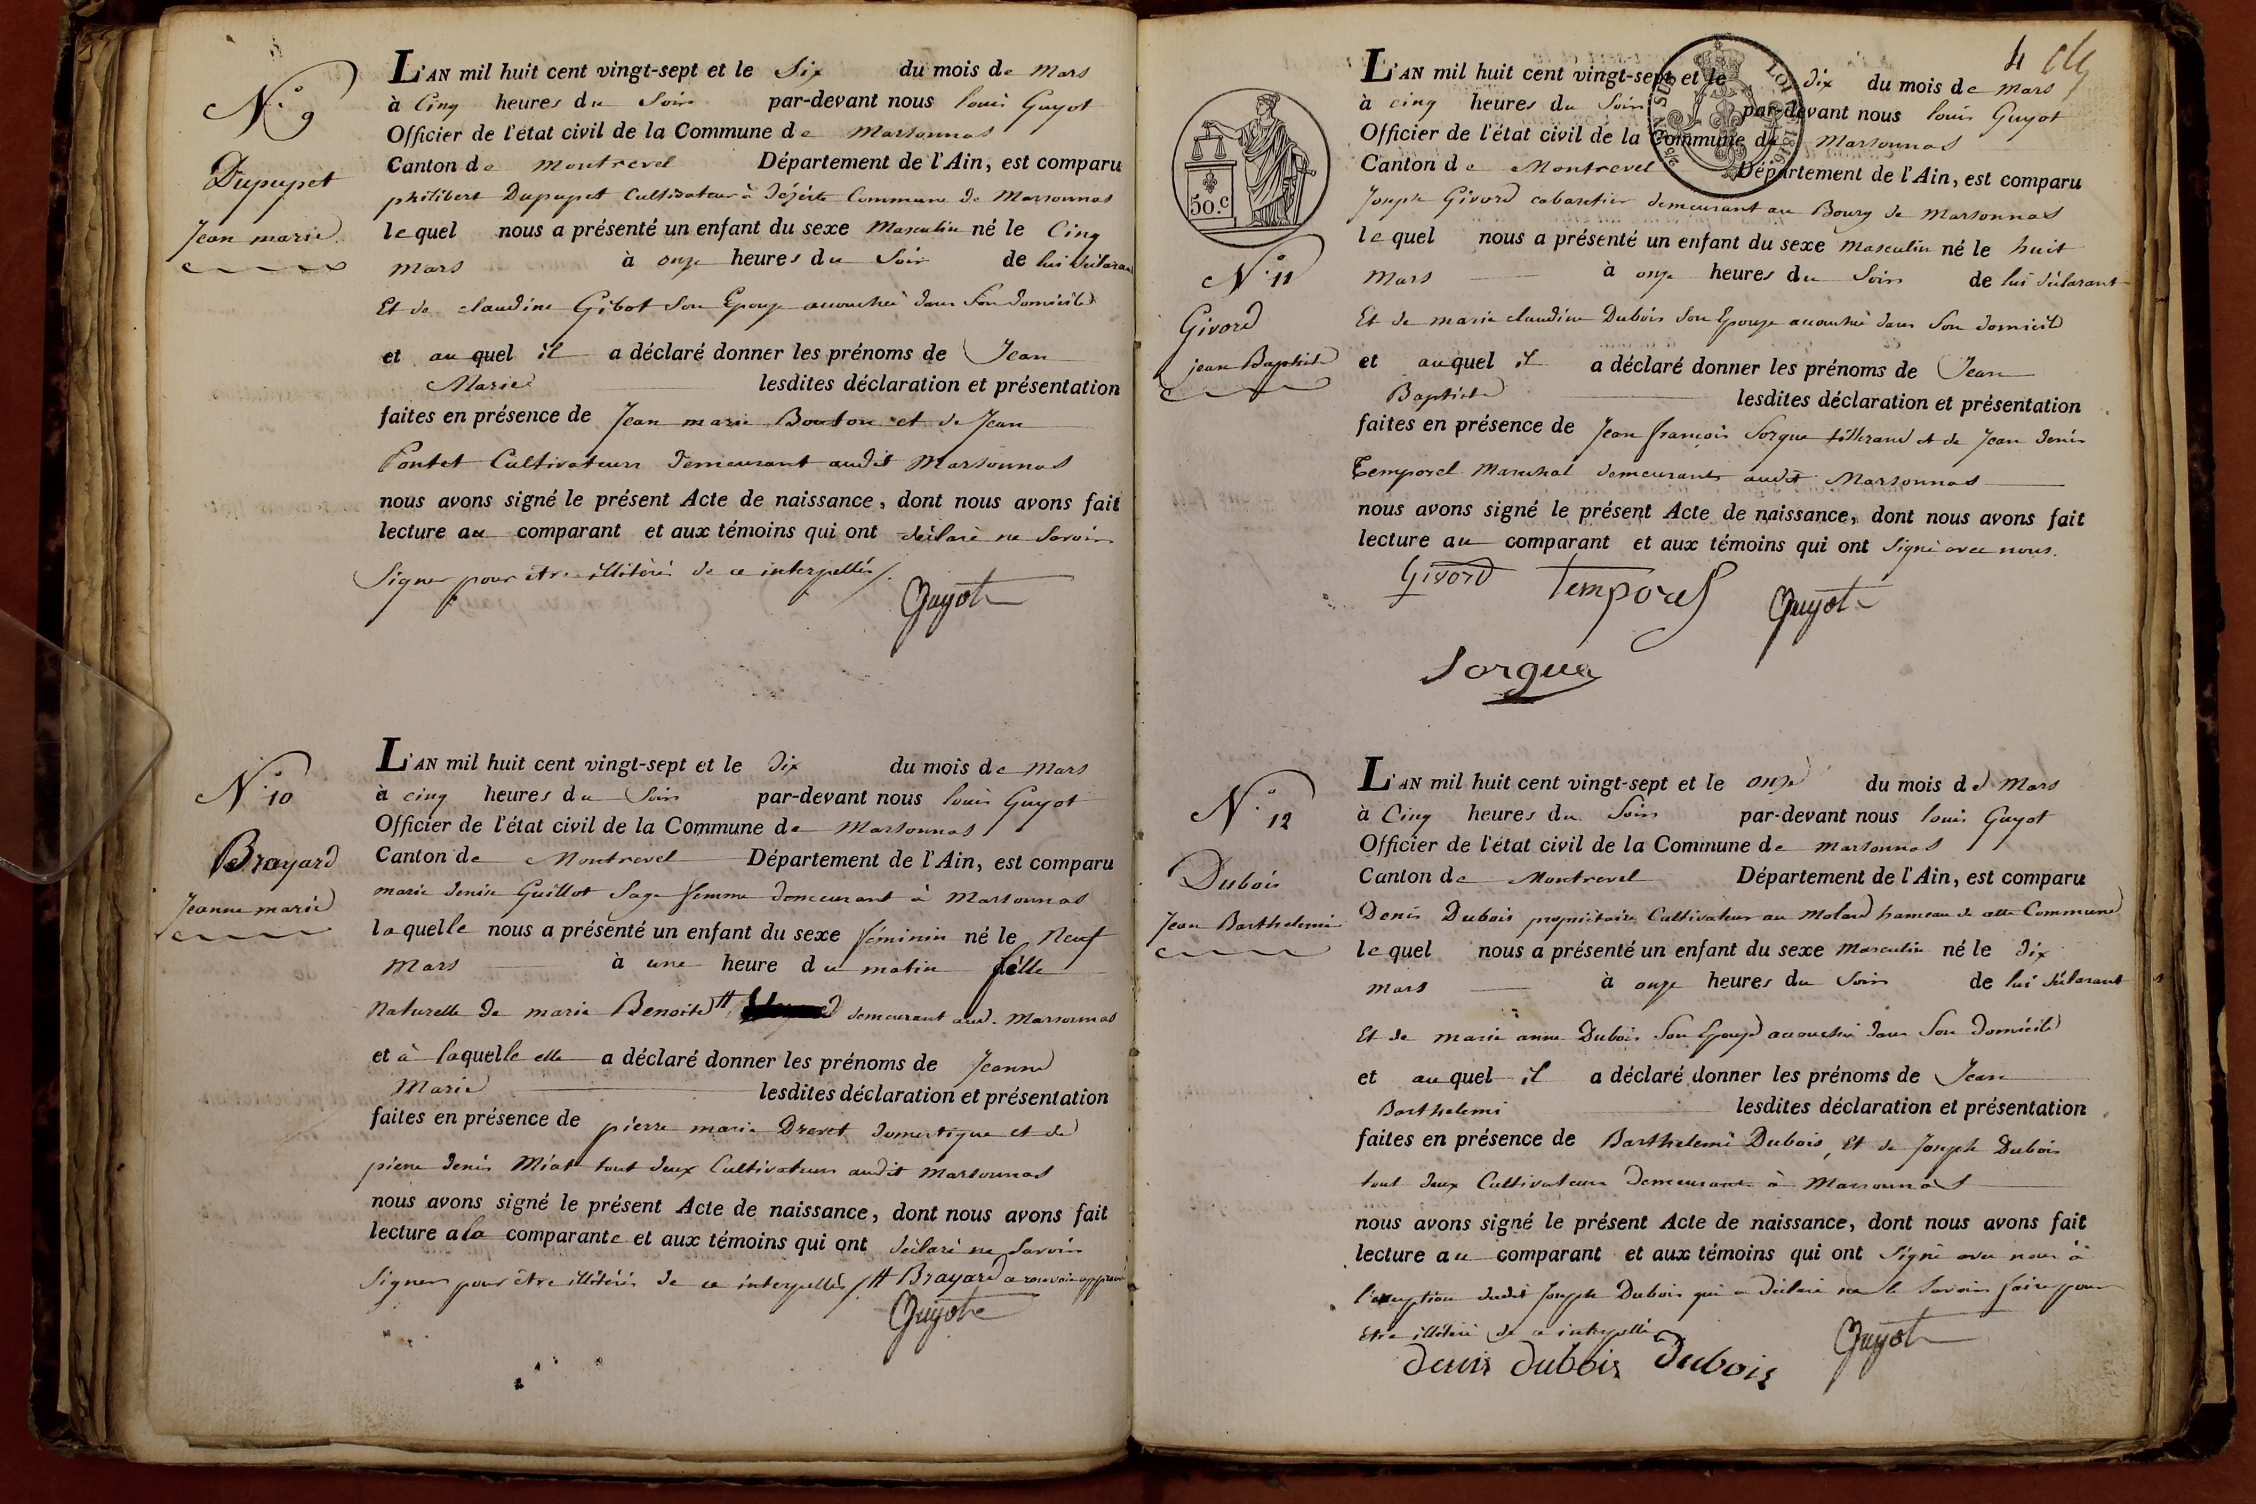 N.° 9
Dupupet
Jean marie
L'AN mil huit cent vingt-sept et le Six du mois de Mars
à Cinq heures du Soir par-devant nous louis Guyot
Officier de l'état civil de la Commune de Marsonnas
Canton de Montrevel Département de l'Ain, est comparu
philibert Dupupet Cultivateur à Commune de Marsonnas
lequel nous a présenté un enfant du sexe Masculin né le Cinq
Mars à onze heures du Soir de lui déclarant
Et de claudine Gibot Son Epouse accouchée dans Son domicile
et auquel il a déclaré donner les prénoms de Jean
Marie lesdites déclaration et présentation
faites en présence de Jean marie Bouton et de Jean
Pontet Cultivateurs demeurant audit Marsonnas
nous avons signé le présent Acte de naissance, dont nous avons fait
lecture au comparant et aux témoins qui ont déclaré ne Savoir
Signer pour être illitérés de ce interpellés/.
Guyot
N.° 10
Brayard
Jeanne marie
L'AN mil huit cent vingt-sept et le dix du mois de Mars
à cinq heures du Soir par-devant nous louis Guyot
Officier de l'état civil de la Commune de Marsonnas
Canton de Montrevel Département de l'Ain, est comparu
marie denise Guillot Sage femme demeurant à Marsonnas
laquelle nous a présenté un enfant du sexe féminin né le Neuf
Mars à une heure du matin fille
Naturelle de marie Benoite # demeurant aud. Marsonnas
et à laquelle elle a déclaré donner les prénoms de Jeanne
Marie lesdites déclaration et présentation
faites en présence de pierre marie Drevet domestique et de
pierre denis Miat tout deux Cultivateurs audit Marsonnas
nous avons signé le présent Acte de naissance, dont nous avons fait
lecture a la comparante et aux témoins qui ont déclaré ne Savoir
Signer pour être illitérés de ce interpellés/ # Brayard approuvé
Guyot
4
LOI 1816
50.c
N.° 11
Givord
jean Baptiste
L'AN mil huit cent vingt-sept et le dix du mois de Mars
à cinq heures du Soir par-devant nous louis Guyot
Officier de l'état civil de la Commune de Marsonnas
Canton de Montrevel Département de l'Ain, est comparu
Joseph Givord cabaretier demeurant au Bourg de Marsonnas
lequel nous a présenté un enfant du sexe Masculin né le huit
Mars à onze heures du Soir de lui déclarant
Et de marie claudine Dubois Son Epouse accouchée dans Son domicile
et auquel il a déclaré donner les prénoms de Jean
Baptiste lesdites déclaration et présentation
faites en présence de Jean françois Sorgue tisserand et de Jean denis
Temporel Marechal demeurants audit Marsonnas
nous avons signé le présent Acte de naissance, dont nous avons fait
lecture au comparant et aux témoins qui ont Signé avec nous.
Givord Temporel Guyot
Sorgue
N.° 12
Dubois
Jean Barthelemi
L'AN mil huit cent vingt-sept et le onze du mois de Mars
à Cinq heures du Soir par-devant nous louis Guyot
Officier de l'état civil de la Commune de Marsonnas
Canton de Montrevel Département de l'Ain, est comparu
Denis Dubois propriétaire Cultivateur au Molard hameau de cette Commune
lequel nous a présenté un enfant du sexe Masculin né le dix
Mars à onze heures du Soir de lui déclarant
Et de marie anne Dubois Son Epouse accouchée dans Son domicile
et auquel il a déclaré donner les prénoms de Jean
Barthelemi lesdites déclaration et présentation
faites en présence de Barthelemi Dubois, Et de Joseph Dubois
tout deux Cultivateurs demeurants à Marsonnas
nous avons signé le présent Acte de naissance, dont nous avons fait
lecture au comparant et aux témoins qui ont Signé avec nous à
l'exception dudit Joseph Dubois qui a déclaré ne le Savoir faire pour
Etre illitéré de ce interpellé
denis dubois Dubois Guyot